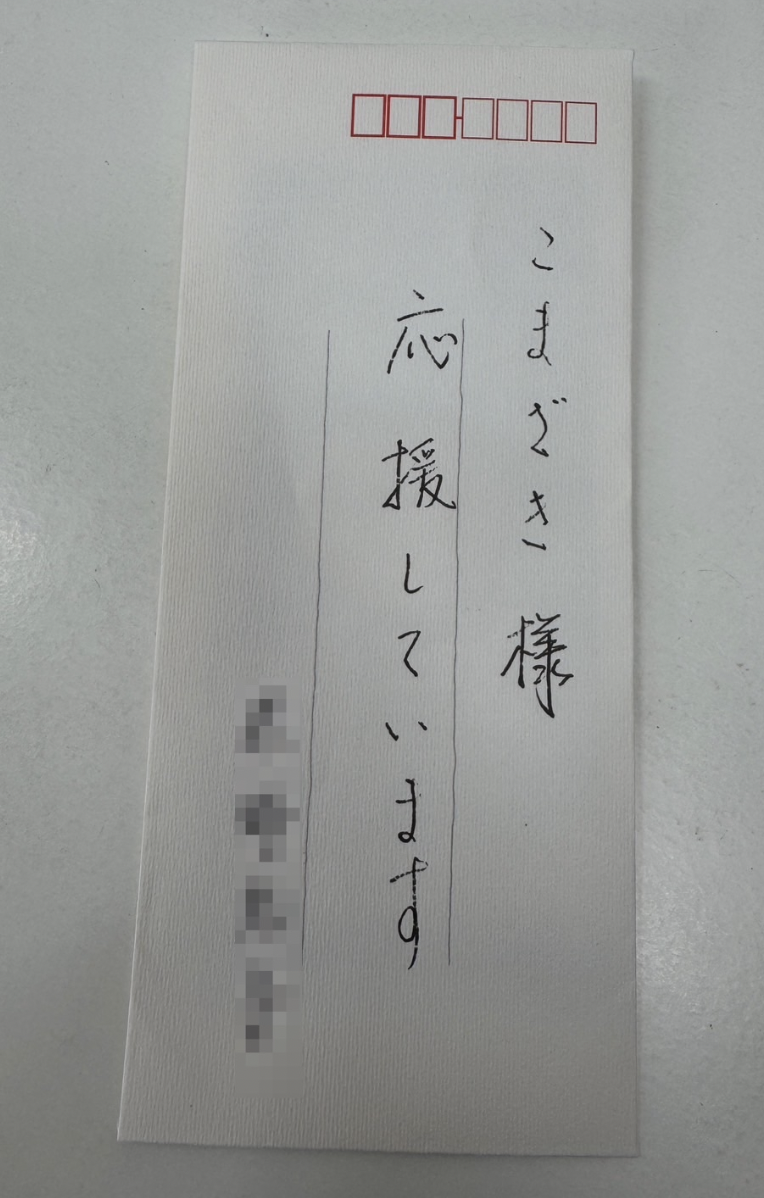 こまざき様
応援しています